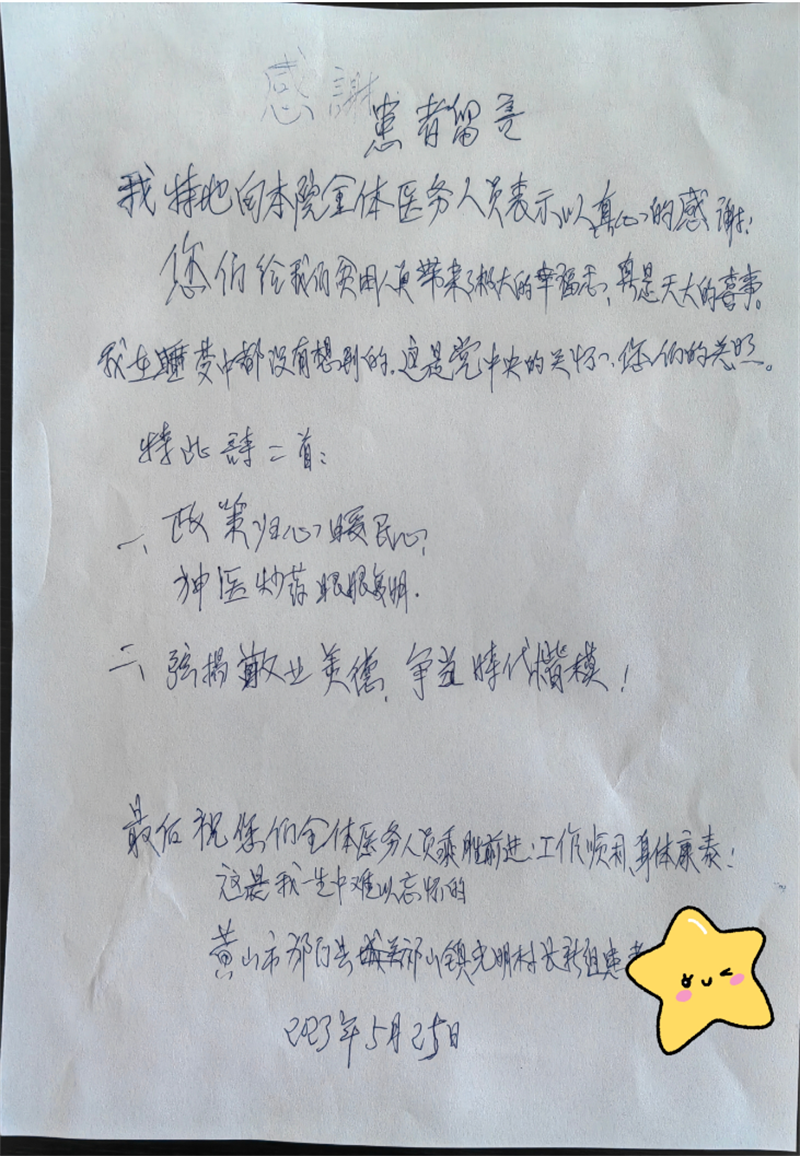 感謝
患者留言
我特地向本院全体医务人员表示以真心的感謝!
您们给我们贫困人员带来了极大的幸福感,真是天大的喜事。
我在睡梦中都没有想到的.这是党中央的关怀、您们的关照。
特此詩二首:
一、政策归心暖民心,
神医妙药眼眼复明.
二、弦揚敬业美德,争当時代楷模!
最后祝您们全体医务人员乘胜前进:工作顺利、身体康泰!
这是我一生中难以忘怀的
黄山市祁门县祁山镇光明村长新组患者
2023年5月25日